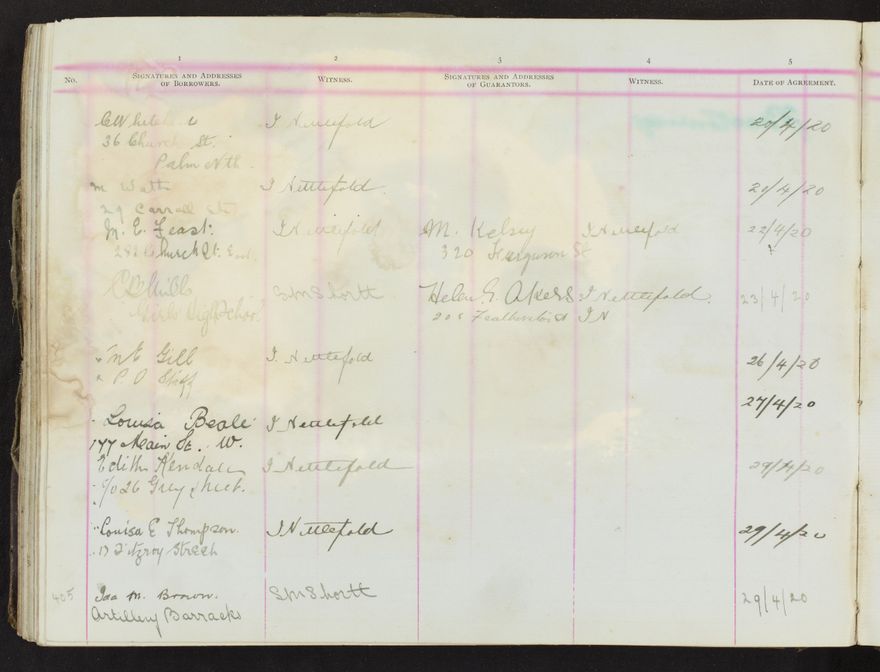 1 2 3 4 5
No. SIGNATURES AND ADDRESSES OF BORROWERS. WITNESS. SIGNATURES AND ADDRESSES OF GUARANTORS. WITNESS. DATE OF AGREEMENT.
I Nettlefold 20/4/20
36 Church St.
Palm Nth.
M Watts I Nettlefold. 20/4/20
29 Carroll St
M. E. Feast. I Nettlefold M. Kelsey I Nettlefold 22/4/20
282 Church St. East. 320 Ferguson St
S M Shortt Helen G. Akers I Nettlefold. 23/4/20
Girls High School 205 Featherston St I N
M E Gill I. Nettlefold 26/4/20
P O Staff
27/4/20
Louisa Beale I Nettlefold
177 Main St. W.
Edith Kendall I Nettlefold 29/4/20
c/o 26 Grey Street.
Louisa E Thompson. I Nettlefold 29/4/20
17 Fitzroy Street
405 Ida M. Brown. S M Shortt 29/4/20
Artillery Barracks